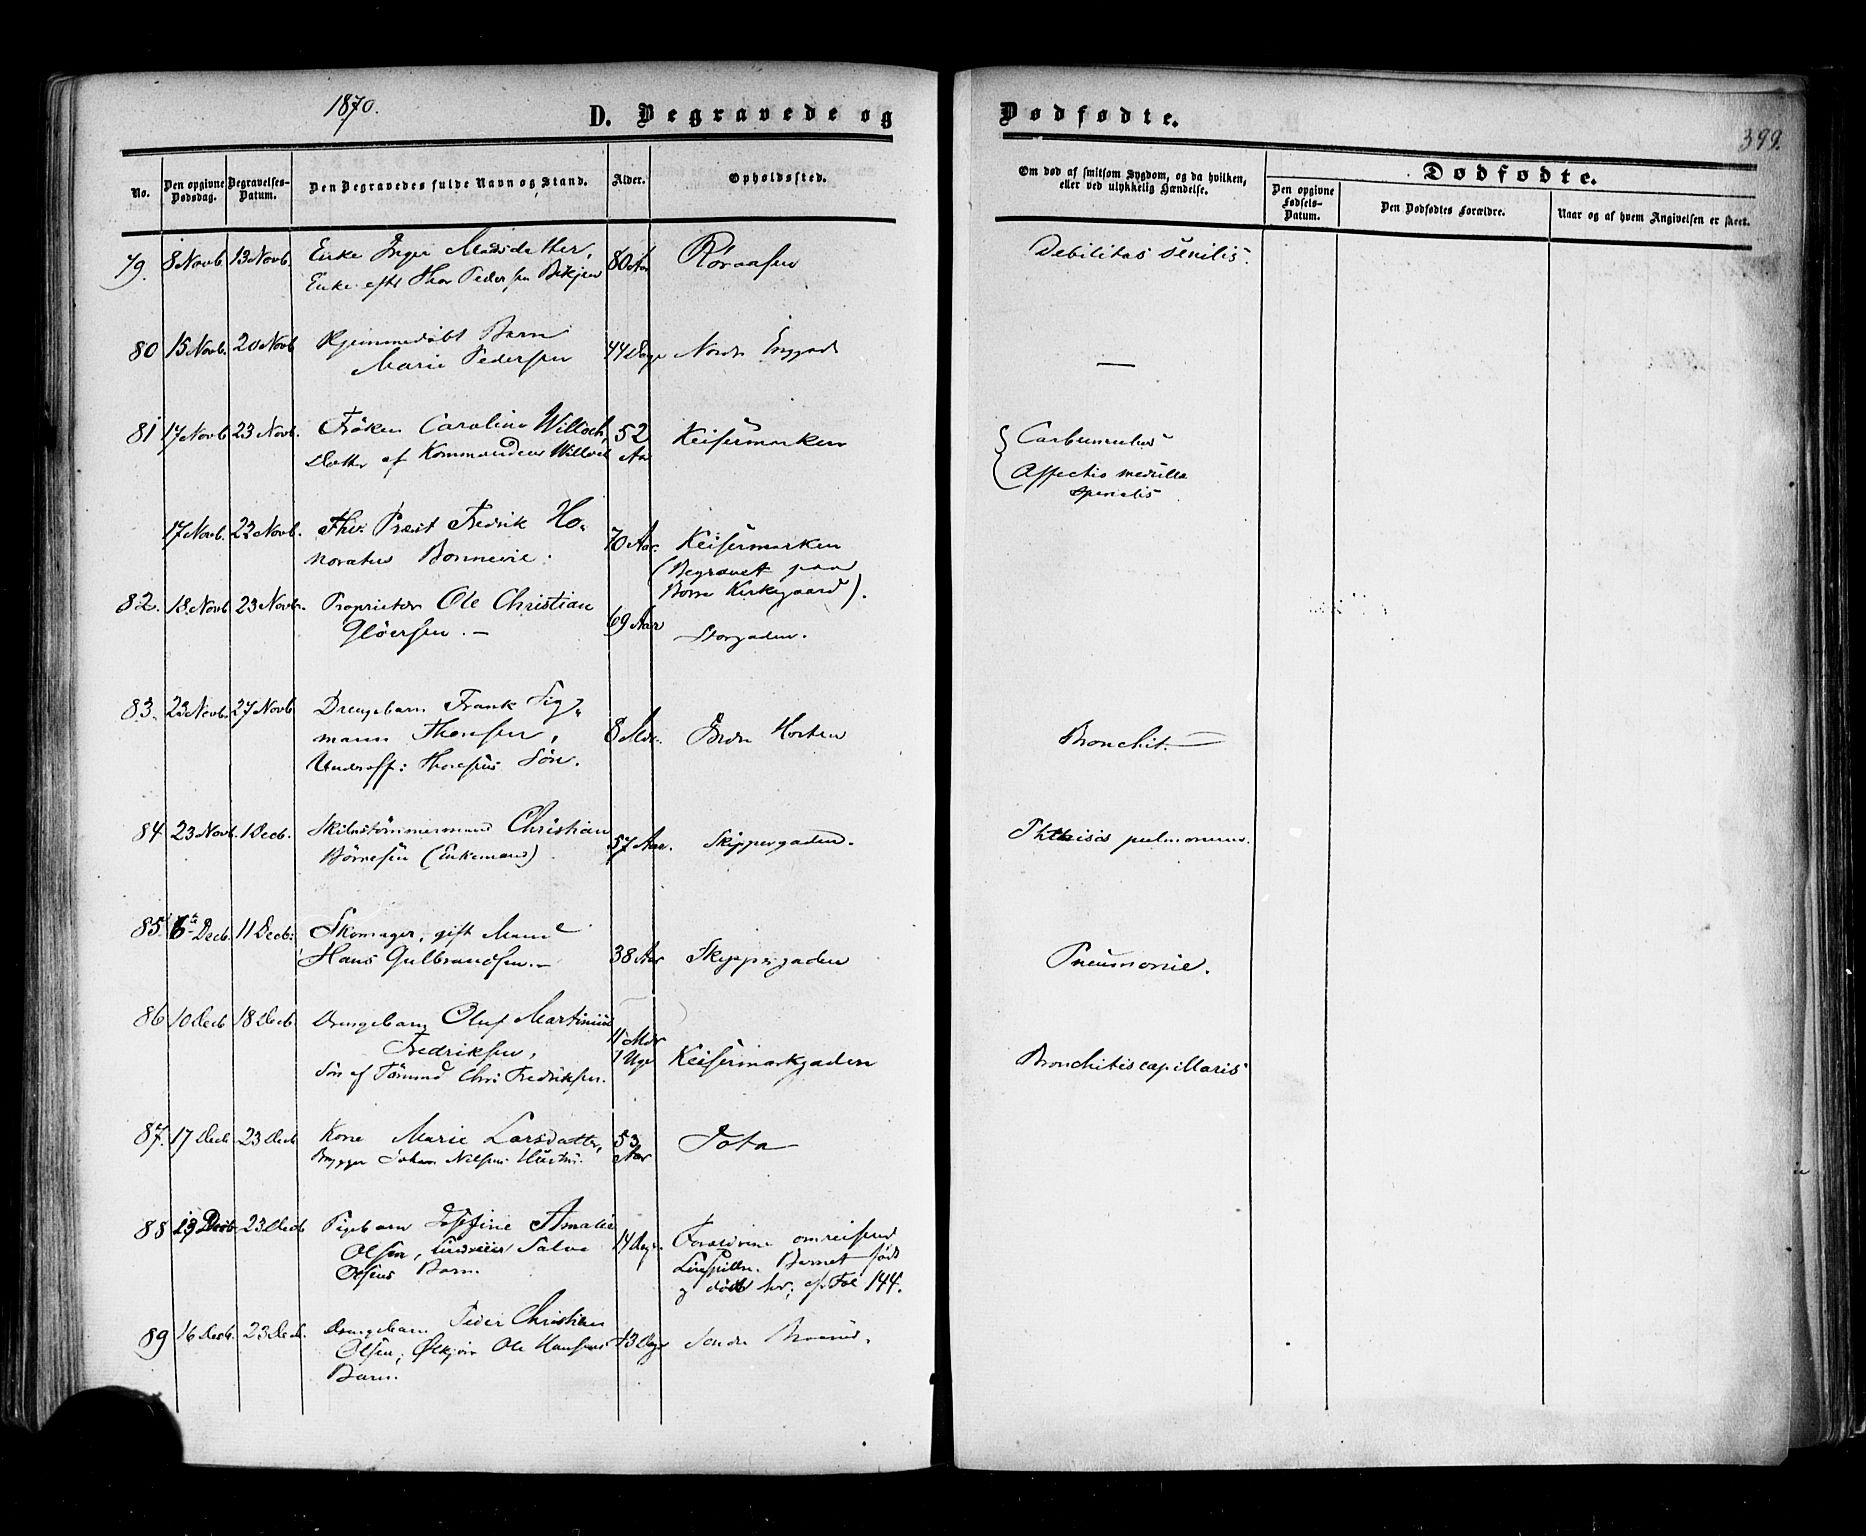 1870.
D. Begravede og
Dødfødte.
399.
No.
Den opgivne Dødsdag.
Begravelses-Datum.
Den Begravedes fulde Navn og Stand.
Alder.
Opholdssted.
Om død af smitsom Sygdom, og da hvilken, eller ved ulykkelig Hændelse.
Dødfødte.
Den opgivne Fødsels-Datum.
Den Dødfødtes Forældre.
Naar og af hvem Angivelsen er skeet.
79. 8 Novb. 13 Novb. Enke Inger Madsdatter, 80 Aar Røraasen Debilitas senilis.
Enke efter Thor Pedersen
80 15 Novb. 20 Novb Hjemmedøbt Barn 44 Dage Nordre Enggade —
Marie Pedersen
81 17 Novb 23 Novb. Frøken Caroline Willoch, 52 Aar Keisermarken Carbunculus
Datter af Kommandeur Willoch Affectio medulla
spinalis
17 Novb. 22 Novb. Fhv: Præst Fredrik Ho-
noratus Bonnevie. 70 Aar. Keisermarken
(Begravet paa
Borre Kirkegaard).
82. 18. Novb 23 Novb. Proprietær Ole Christian
Gløersen. — 69 Aar Storgaden.
83. 23 Novb. 27 Novb Drengebarn Frank Sig-
mann Thoresen, 8 Mdr. Indre Horten Bronchit.
Underoff: Thoresens Søn.
84 23 Novb. 1 Decb. Skibstømmermand Christian
Børnesen (Enkemand) 57 Aar. Skippergaden. Phthisis pulmonum.
85. 6te Decb. 11 Decb. Skomager, gift Mand
Hans Gulbrandsen. — 38 Aar Skippergaden Pneumonie.
86 10 Decb 18 Decb. Drengebarn Oluf Martinius
Fredriksen, 11 Mdr
1 Uge Keisermarkgaden Bronchitis capillaris
Søn af Tømmd Chr. Fredriksen.
87. 17 Decb 23 Decb Kone Marie Larsdatter, 53 Aar
Brygger Johan Nilsens Hustru.
88 13 Decb 23 Decb Pigebarn Josefine Amalie 14 Dage Forældrene omreisende
Olsen, Salve Lirespillere. Barnet født
Olsens Barn. og død her; cf. Fol 144.
89 16 Decb. 23 Decb. Drengebarn Peder Christian
Olsen, Ølkjører Ole Hansens 13 Dage Søndre
Barn.